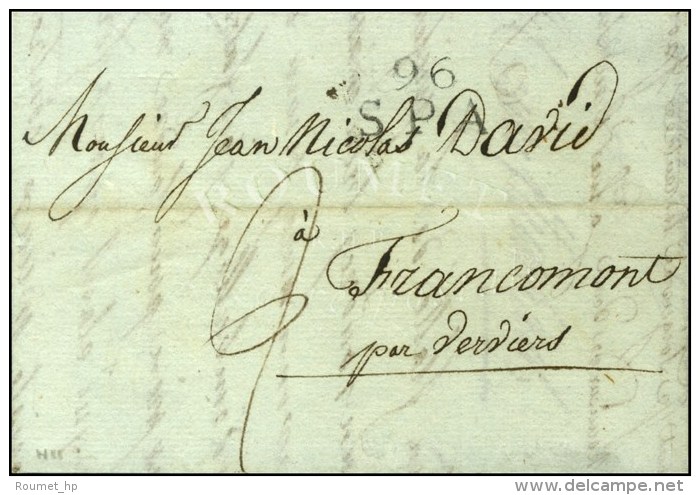 96
SPA
Monsieur Jean Nicolas David
à
Francomont
par Verviers
ROUMET
Roumet_hp
delcampe.net